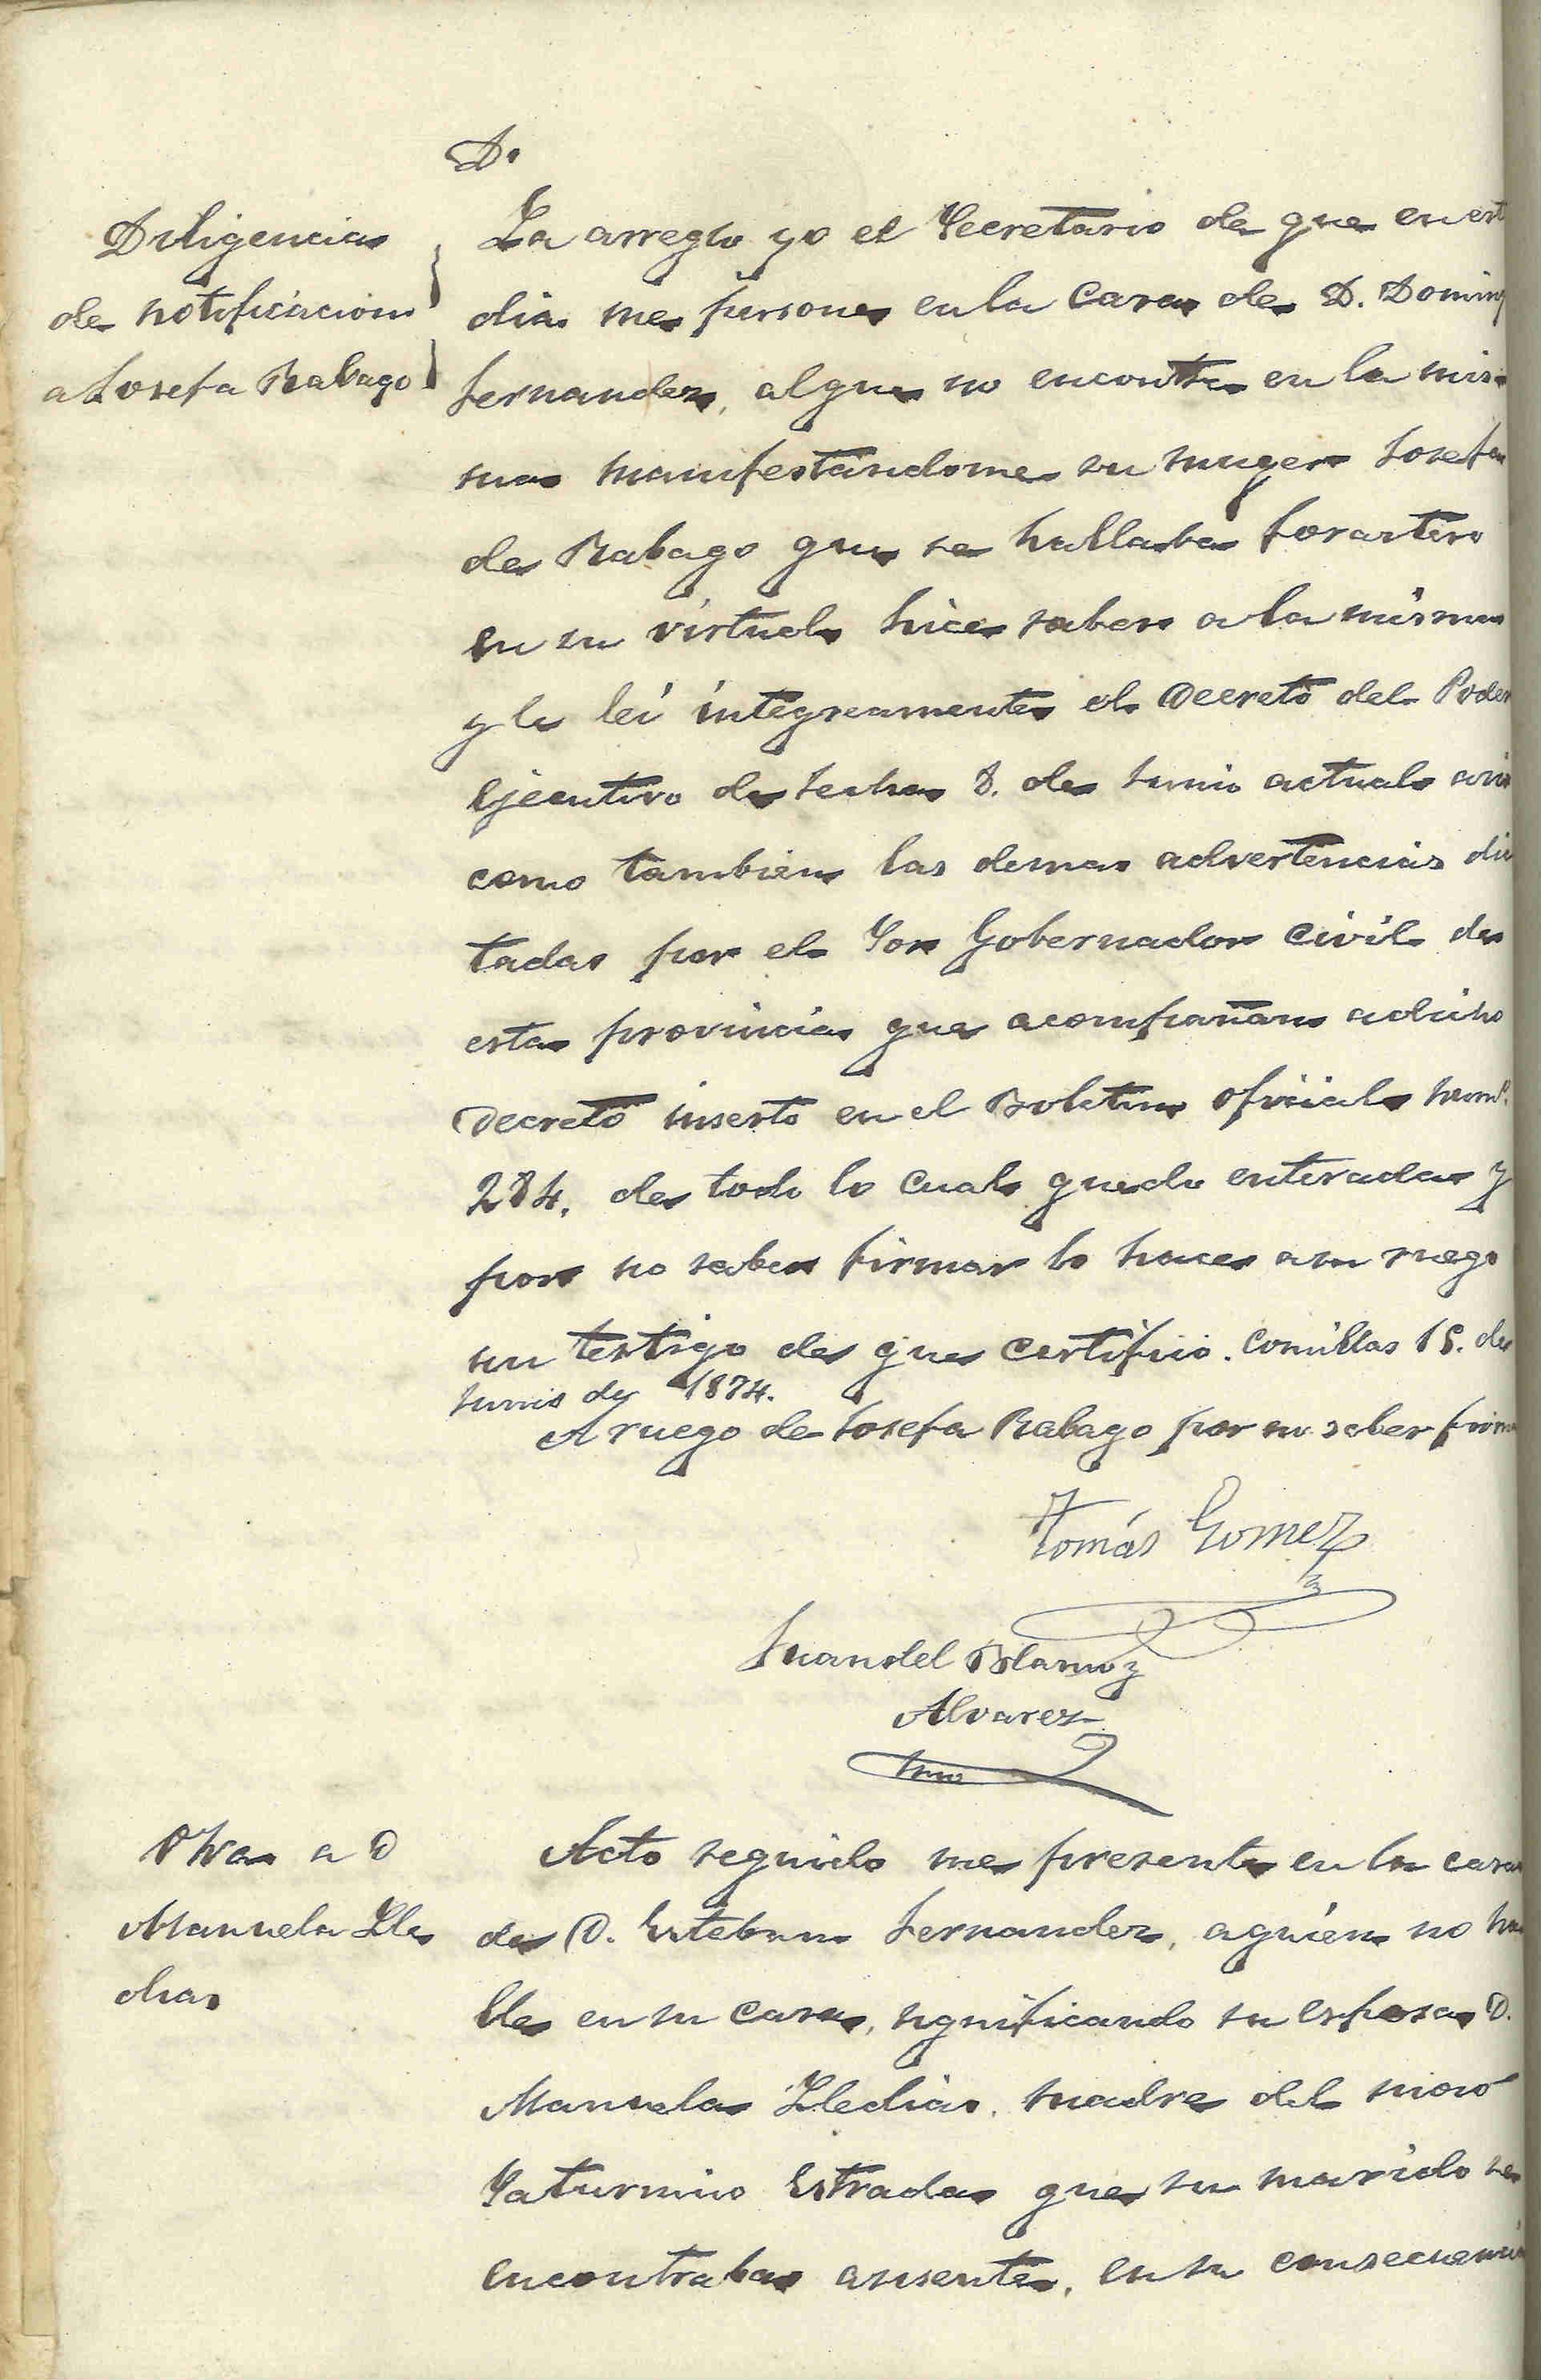 D.
Diligencia
de notificacion
a Josefa Rabago
La arreglo yo el Secretario de que en est
dia me persone en la casa de D. Doming
Fernandez, al que no encontre en la mis-
ma manifestandome su muger Josefa
de Rabago que se hallaba forastero
en su virtud hice saber a la misma
y le lei integreamente el Decreto del Poder
Ejecutivo de fecha 8. de Junio actual asi
como tambien las demas advertencias dic
tadas por el Sor Gobernador civil de
esta provincia que acompañan a dicho
Decreto inserto en el Boletin oficial num.
284. de todo lo cual quedo enterada y
por no saber firmar lo hace a su ruego
un testigo de que certifico. Comillas 15. de
Junio de 1874.
A ruego de Josefa Rabago por no saber firma
Tomás Gomez
Juan del Blanco y
Alvarez
Srio
Otra a D
Manuela Lle
dias
Acto seguido me presente en la casa
de D. Esteban Fernandez, a quien no ha
lle en su casa, significando su esposa D.
Manuela Lledias, madre del mozo
Saturnino Estrada que su marido se
encontraba ausente, en su consecuencia